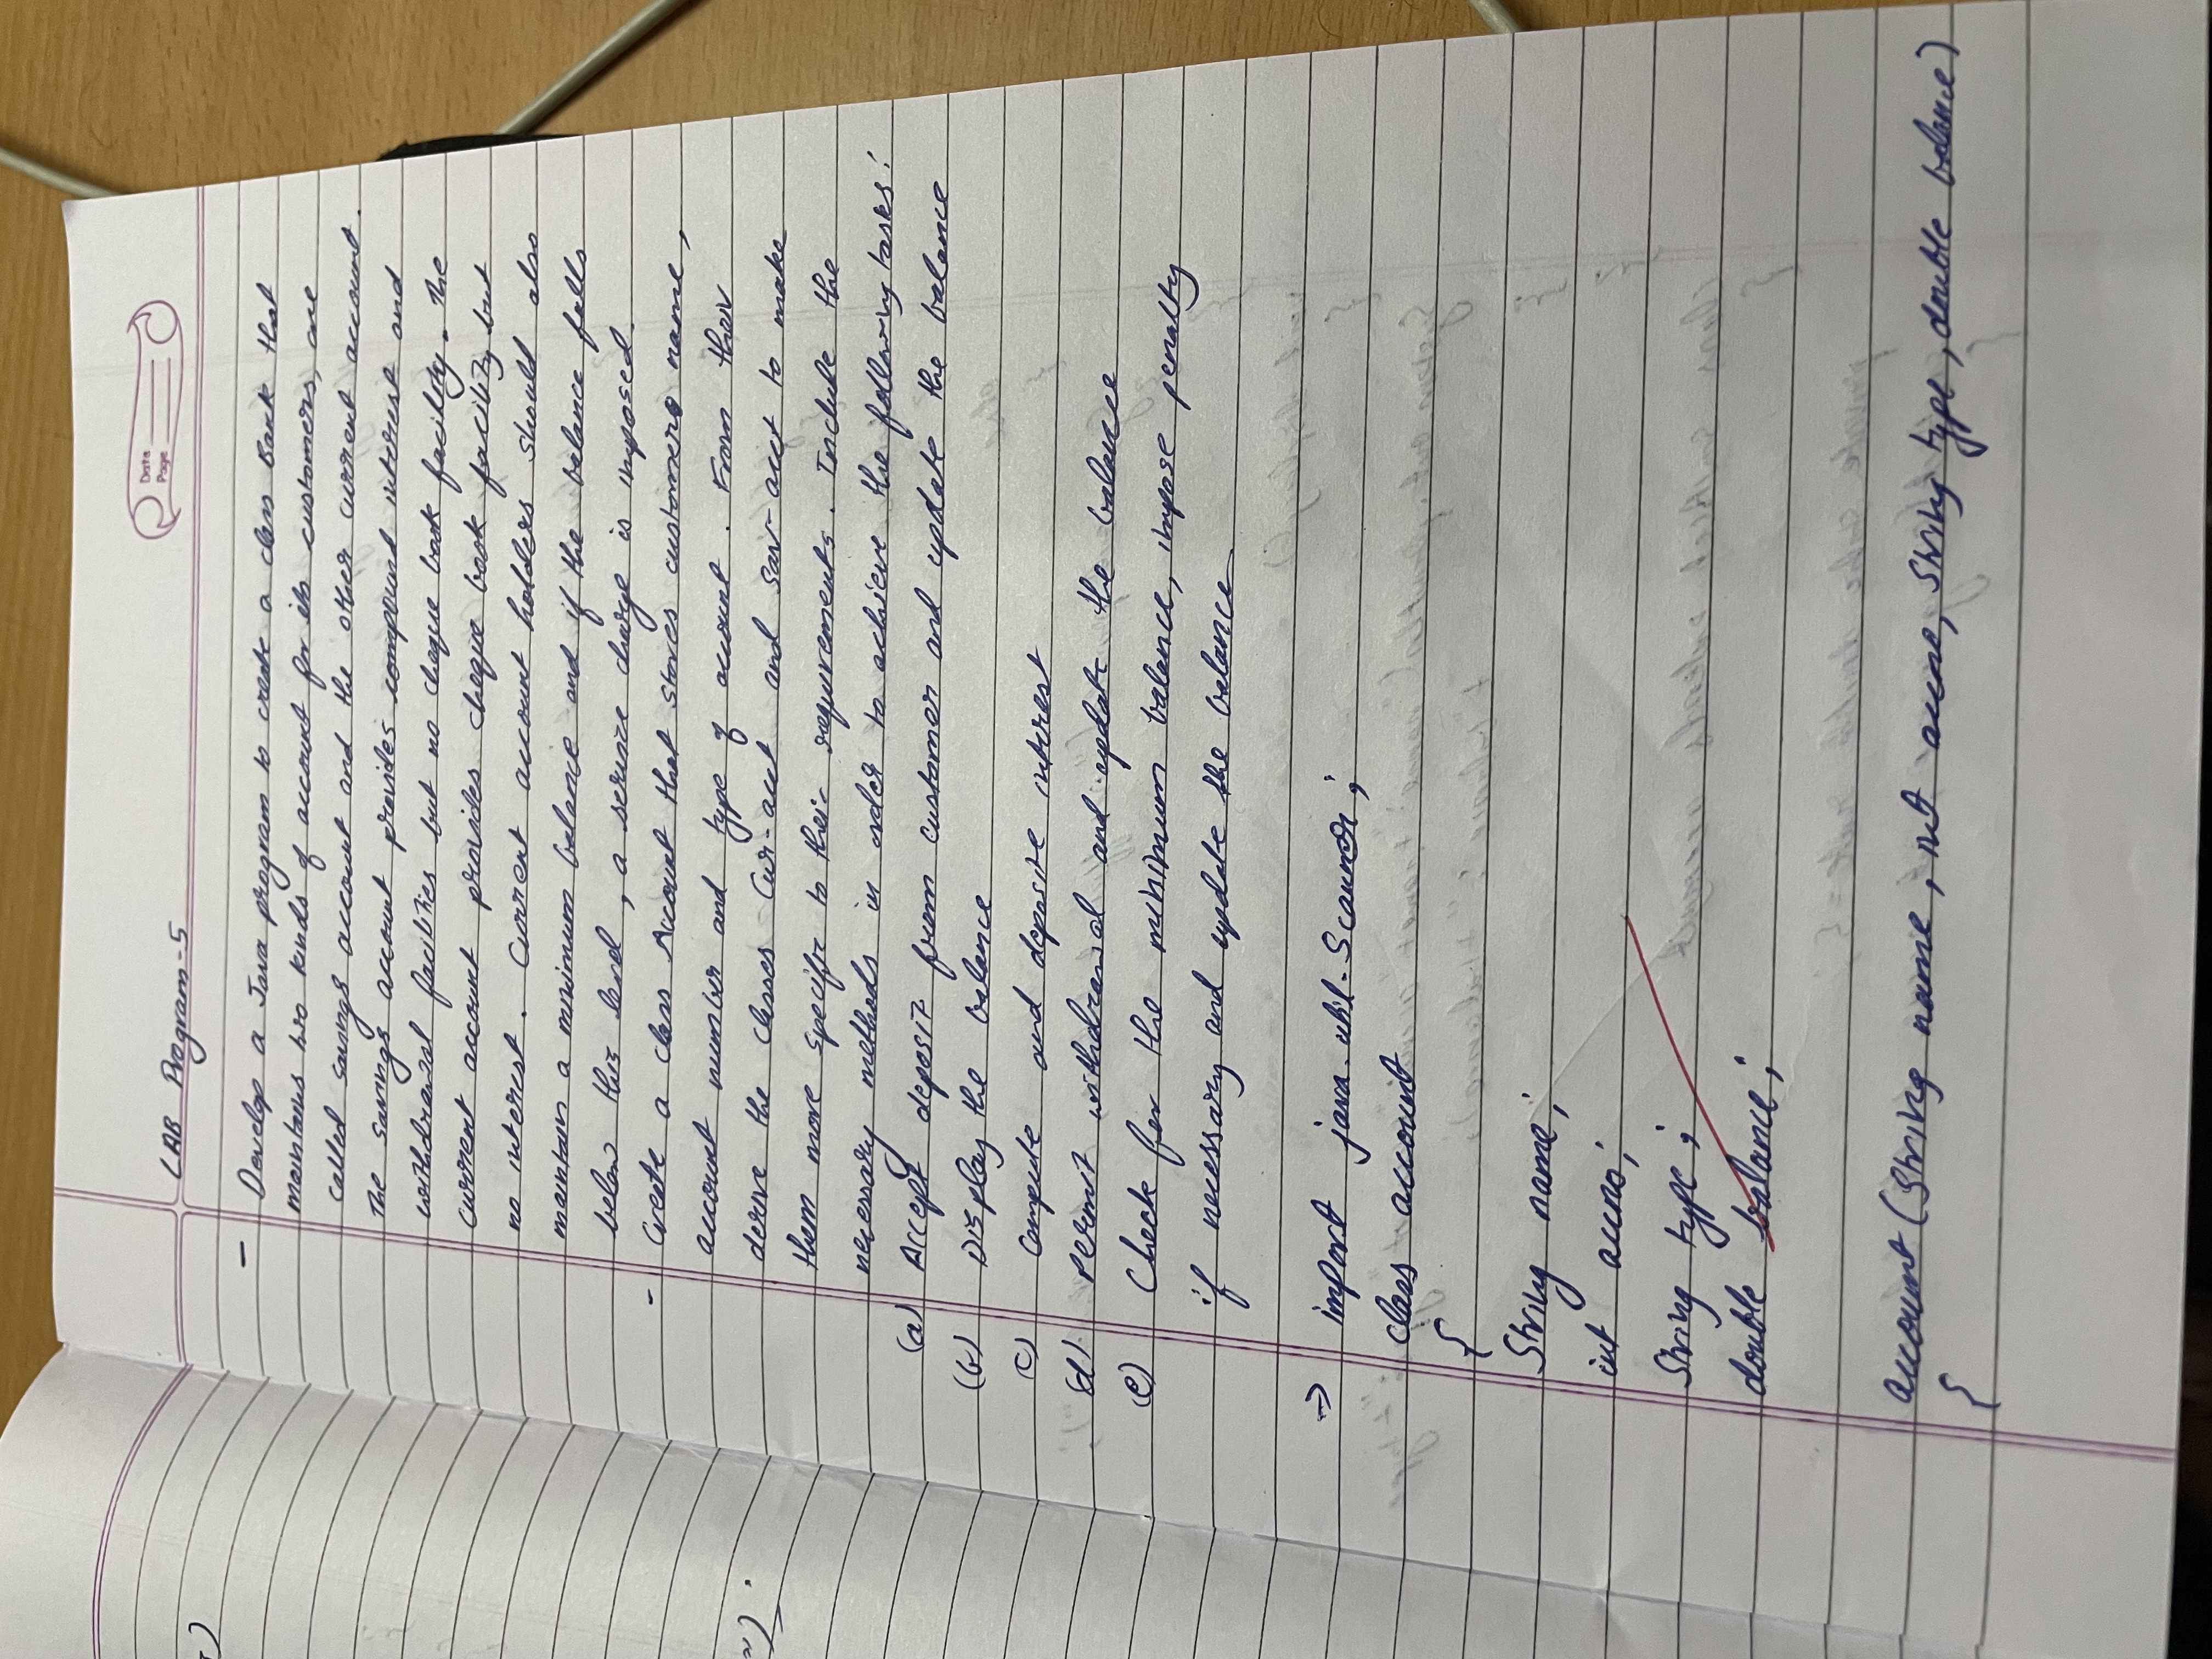 Date
Page
LAB Program-5
- Develop a Java program to create a class Bank that
maintains two kinds of account for its customers, one
called savings account and the other current account.
The savings account provides compound interest and
withdrawal facilities but no cheque book facility. The
current account provides cheque book facility but
no interest. Current account holders should also
maintain a minimum balance and if the balance falls
below this level, a service charge is imposed.
- Create a class Account that stores customers name,
account number and type of account. From their
derive the classes Cur-acct and Sav-acct to make
them more specific to their requirements. Include the
necessary methods in order to achieve the following tasks:
(a) Accept deposit from customer and update the balance
(b) Display the balance
(c) Compute and deposite interest
(d) Permit withdrawal and update the balance
(e) Check for the minimum balance, impose penalty
if necessary and update the balance
→ import java.util.Scanner;
class account
{
String name;
int accno;
String type;
double balance;
account (String name, int accno, String type, double balance)
{